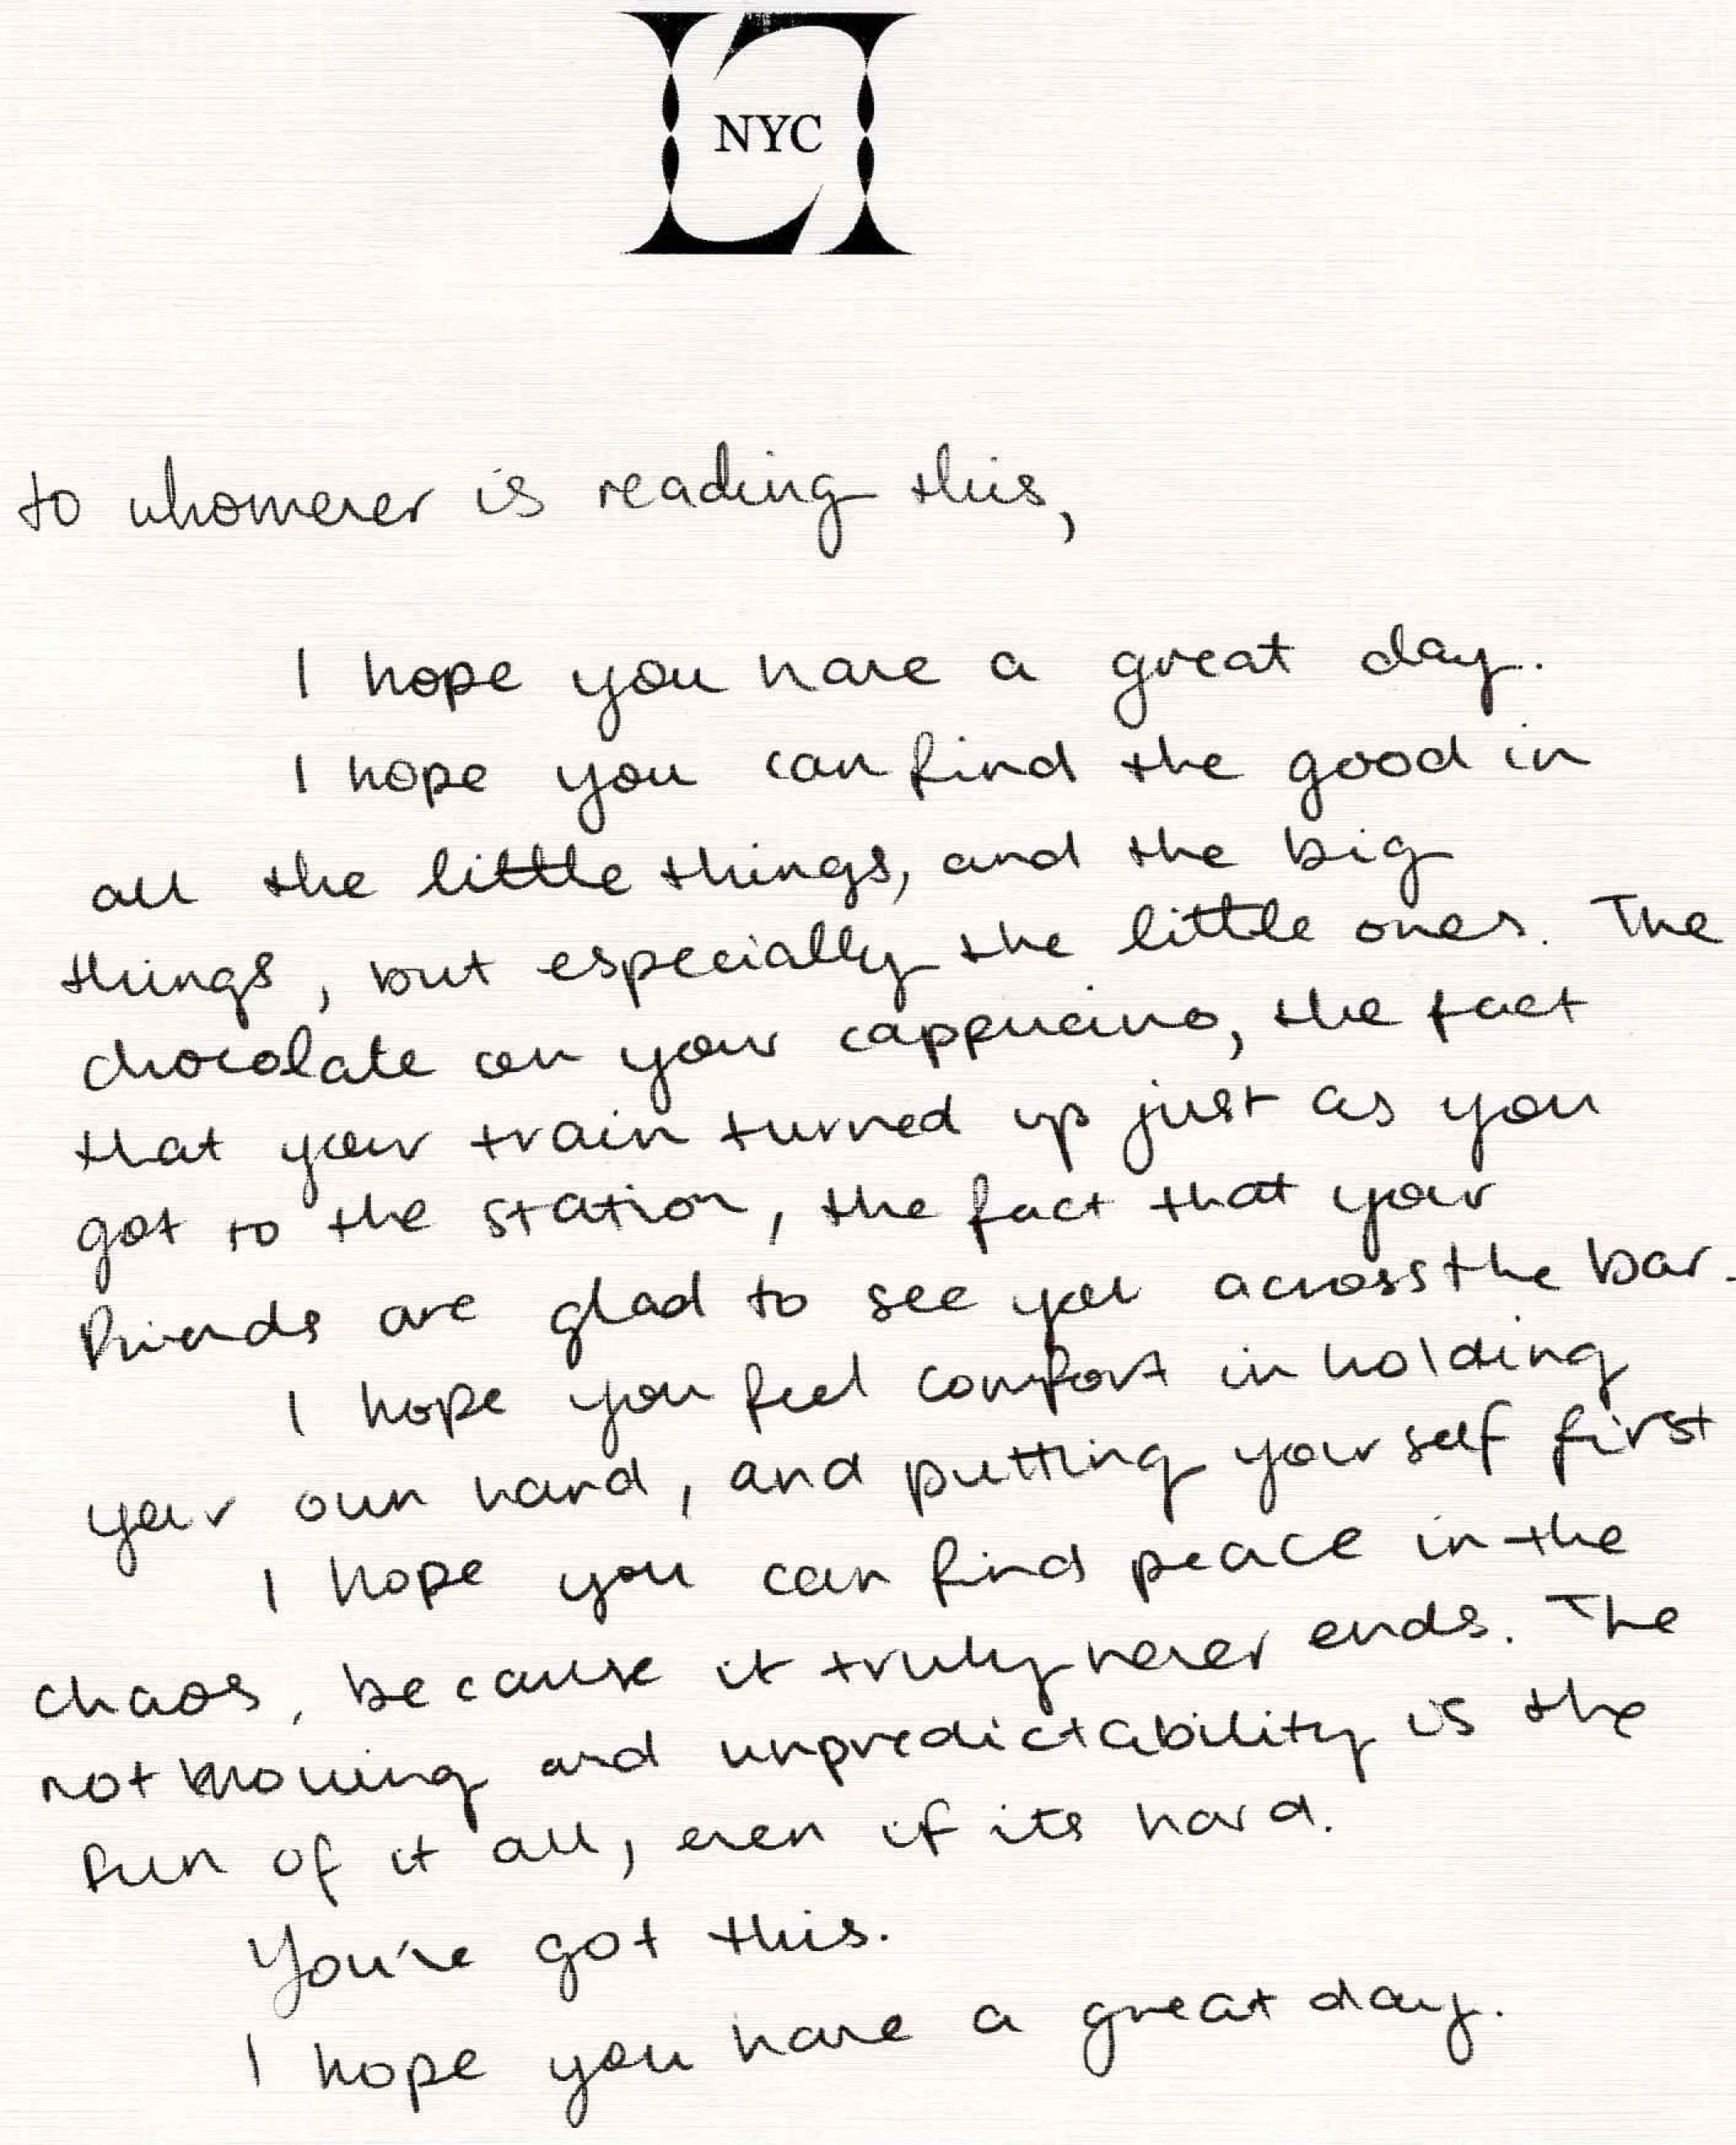 NYC
to whomever is reading this,
I hope you have a great day.
I hope you can find the good in
all the little things, and the big
things, but especially the little ones. The
chocolate on your cappucino, the fact
that your train turned up just as you
got to the station, the fact that your
friends are glad to see you across the bar.
I hope you feel comfort in holding
your own hand, and putting yourself first
I hope you can find peace in the
chaos, because it truly never ends. The
not knowing and unpredictability is the
fun of it all, even if its hard.
You're got this.
I hope you have a great day.